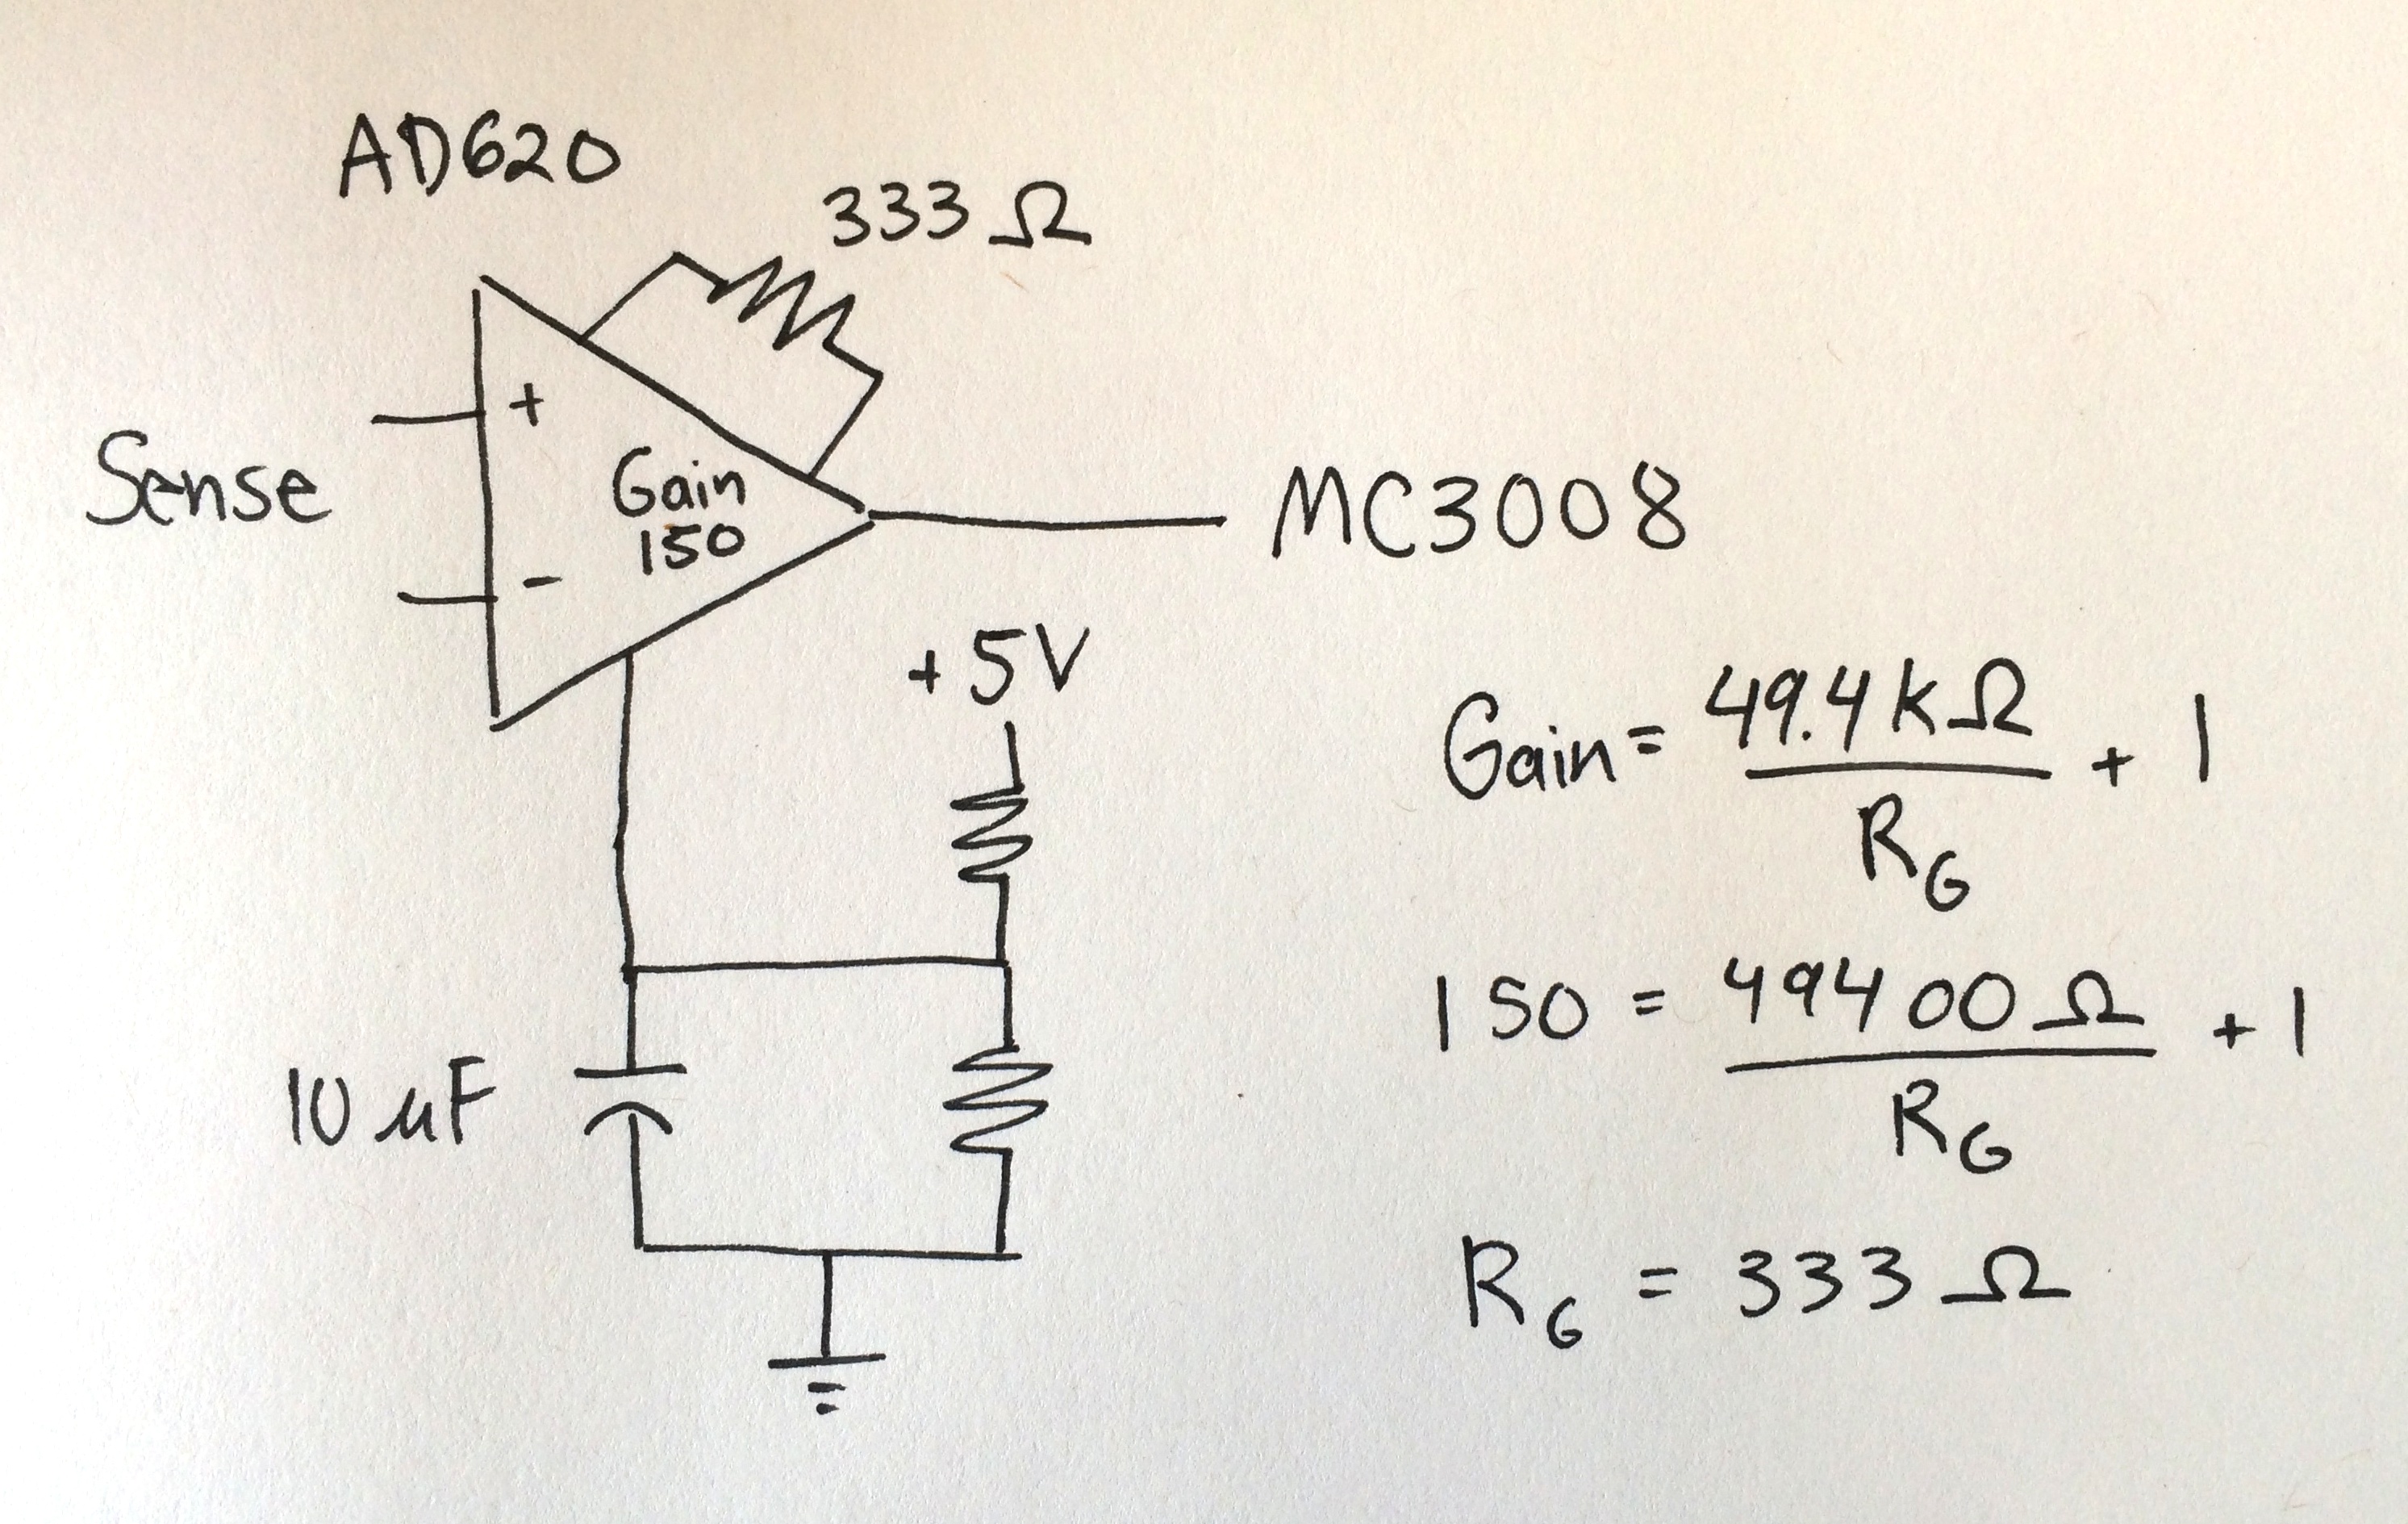 AD620
333 Ω
Sense
+
-
Gain
150
MC3008
+5V
10 µF
Gain = 49.4 kΩ / R_G + 1
150 = 49400 Ω / R_G + 1
R_G = 333 Ω